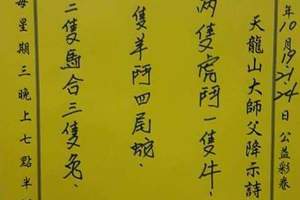 年10月19.21.24日公益彩卷
天龍山大師父降示詩
兩隻虎鬥一隻牛、
隻羊鬥四尾蛇、
二隻馬合三隻兔、
每星期三晚上七點半